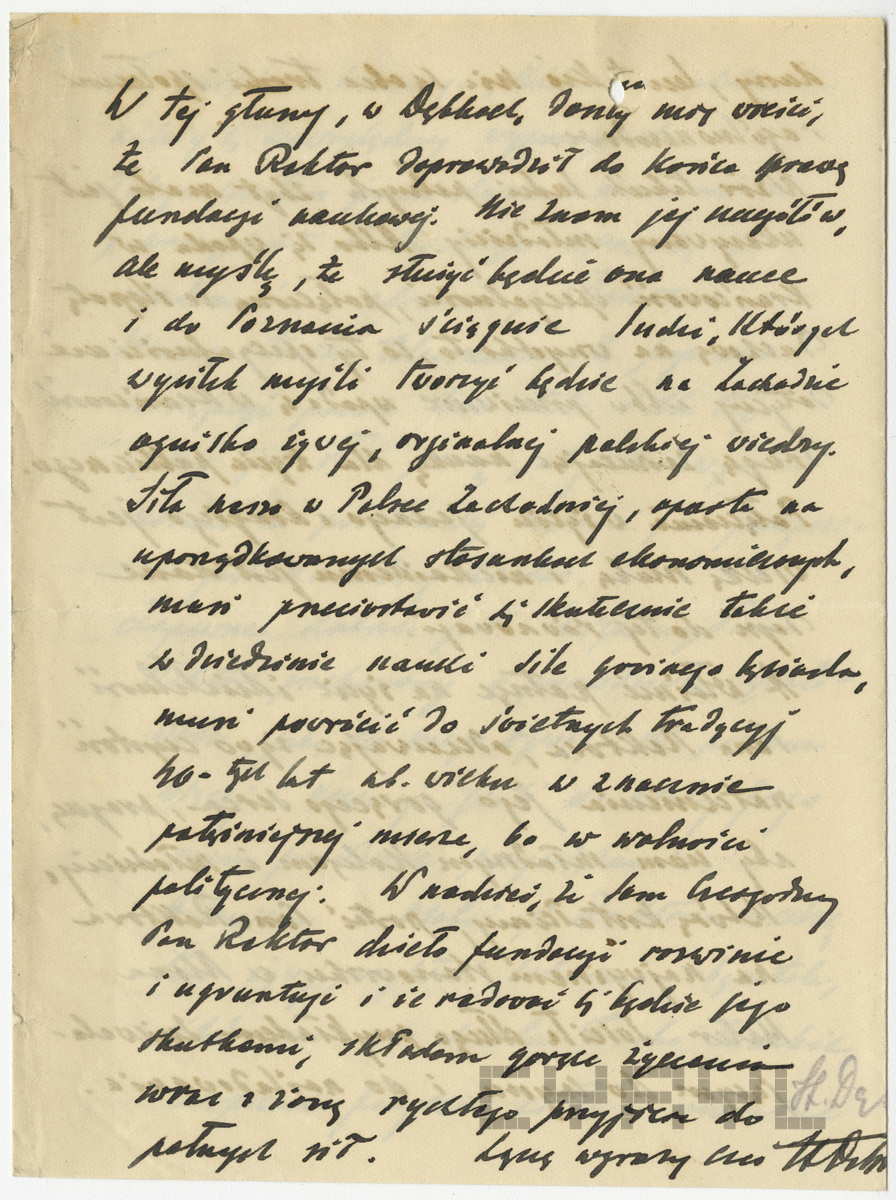 W tej głuszy, w Dębkach, doszły mnie wieści,
że Pan Rektor doprowadził do końca sprawę
fundacji naukowej. Nie znam jej uczestników,
ale myślę, że służyć będzie ona nauce
i do Poznania ściągnie ludzi, których
wysiłek myśli tworzyć będzie na Zachodzie
ognisko żywej, orginalnej polskiej wiedzy.
Siła nasza w Polsce Zachodniej, oparta na
uporządkowanych stosunkach ekonomicznych,
musi przeciwstawić się skutecznie także
w dziedzinie nauki sile
musi powrócić do świetnych tradycyj
40-tych lat ub. wieku w znacznie
potężniejszej mierze, bo w wolności
politycznej. W nadziei, że sam Czcigodny
Pan Rektor dzieło fundacji rozwinie
i ugruntuje i że radować się będzie jego
skutkami, składam gorące życzenia
wraz z żoną rychłego przyjścia do
pełnych sił. Łączę wyrazy czci
St. Dą
CYRYL